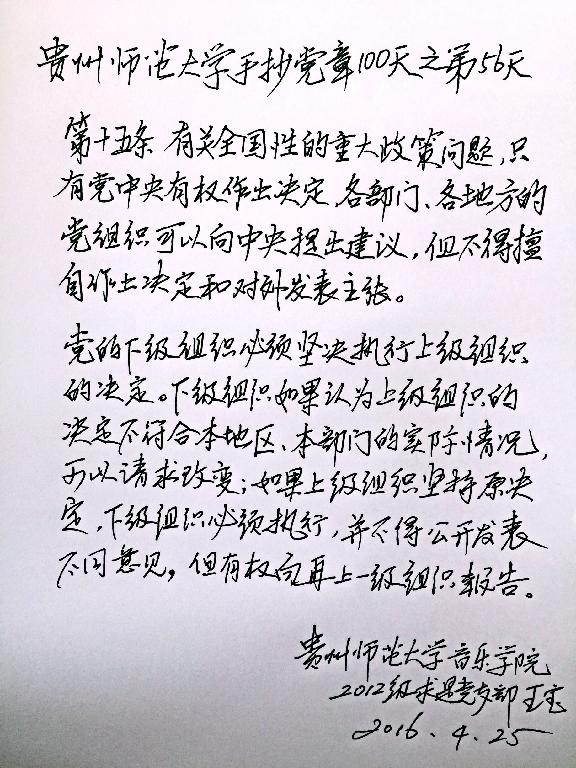 贵州师范大学手抄党章100天之第56天
第十五条 有关全国性的重大政策问题，只
有党中央有权作出决定，各部门、各地方的
党组织可以向中央提出建议，但不得擅
自作出决定和对外发表主张。
党的下级组织必须坚决执行上级组织
的决定。下级组织如果认为上级组织的
决定不符合本地区、本部门的实际情况，
可以请求改变；如果上级组织坚持原决
定，下级组织必须执行，并不得公开发表
不同意见，但有权向再上一级组织报告。
贵州师范大学音乐学院
2012级求是党支部 王宝
2016.4.25